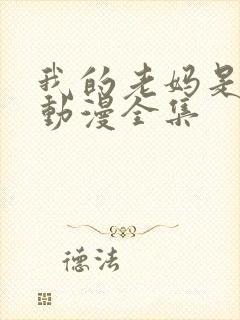 我的老妈是
動漫全集
德法